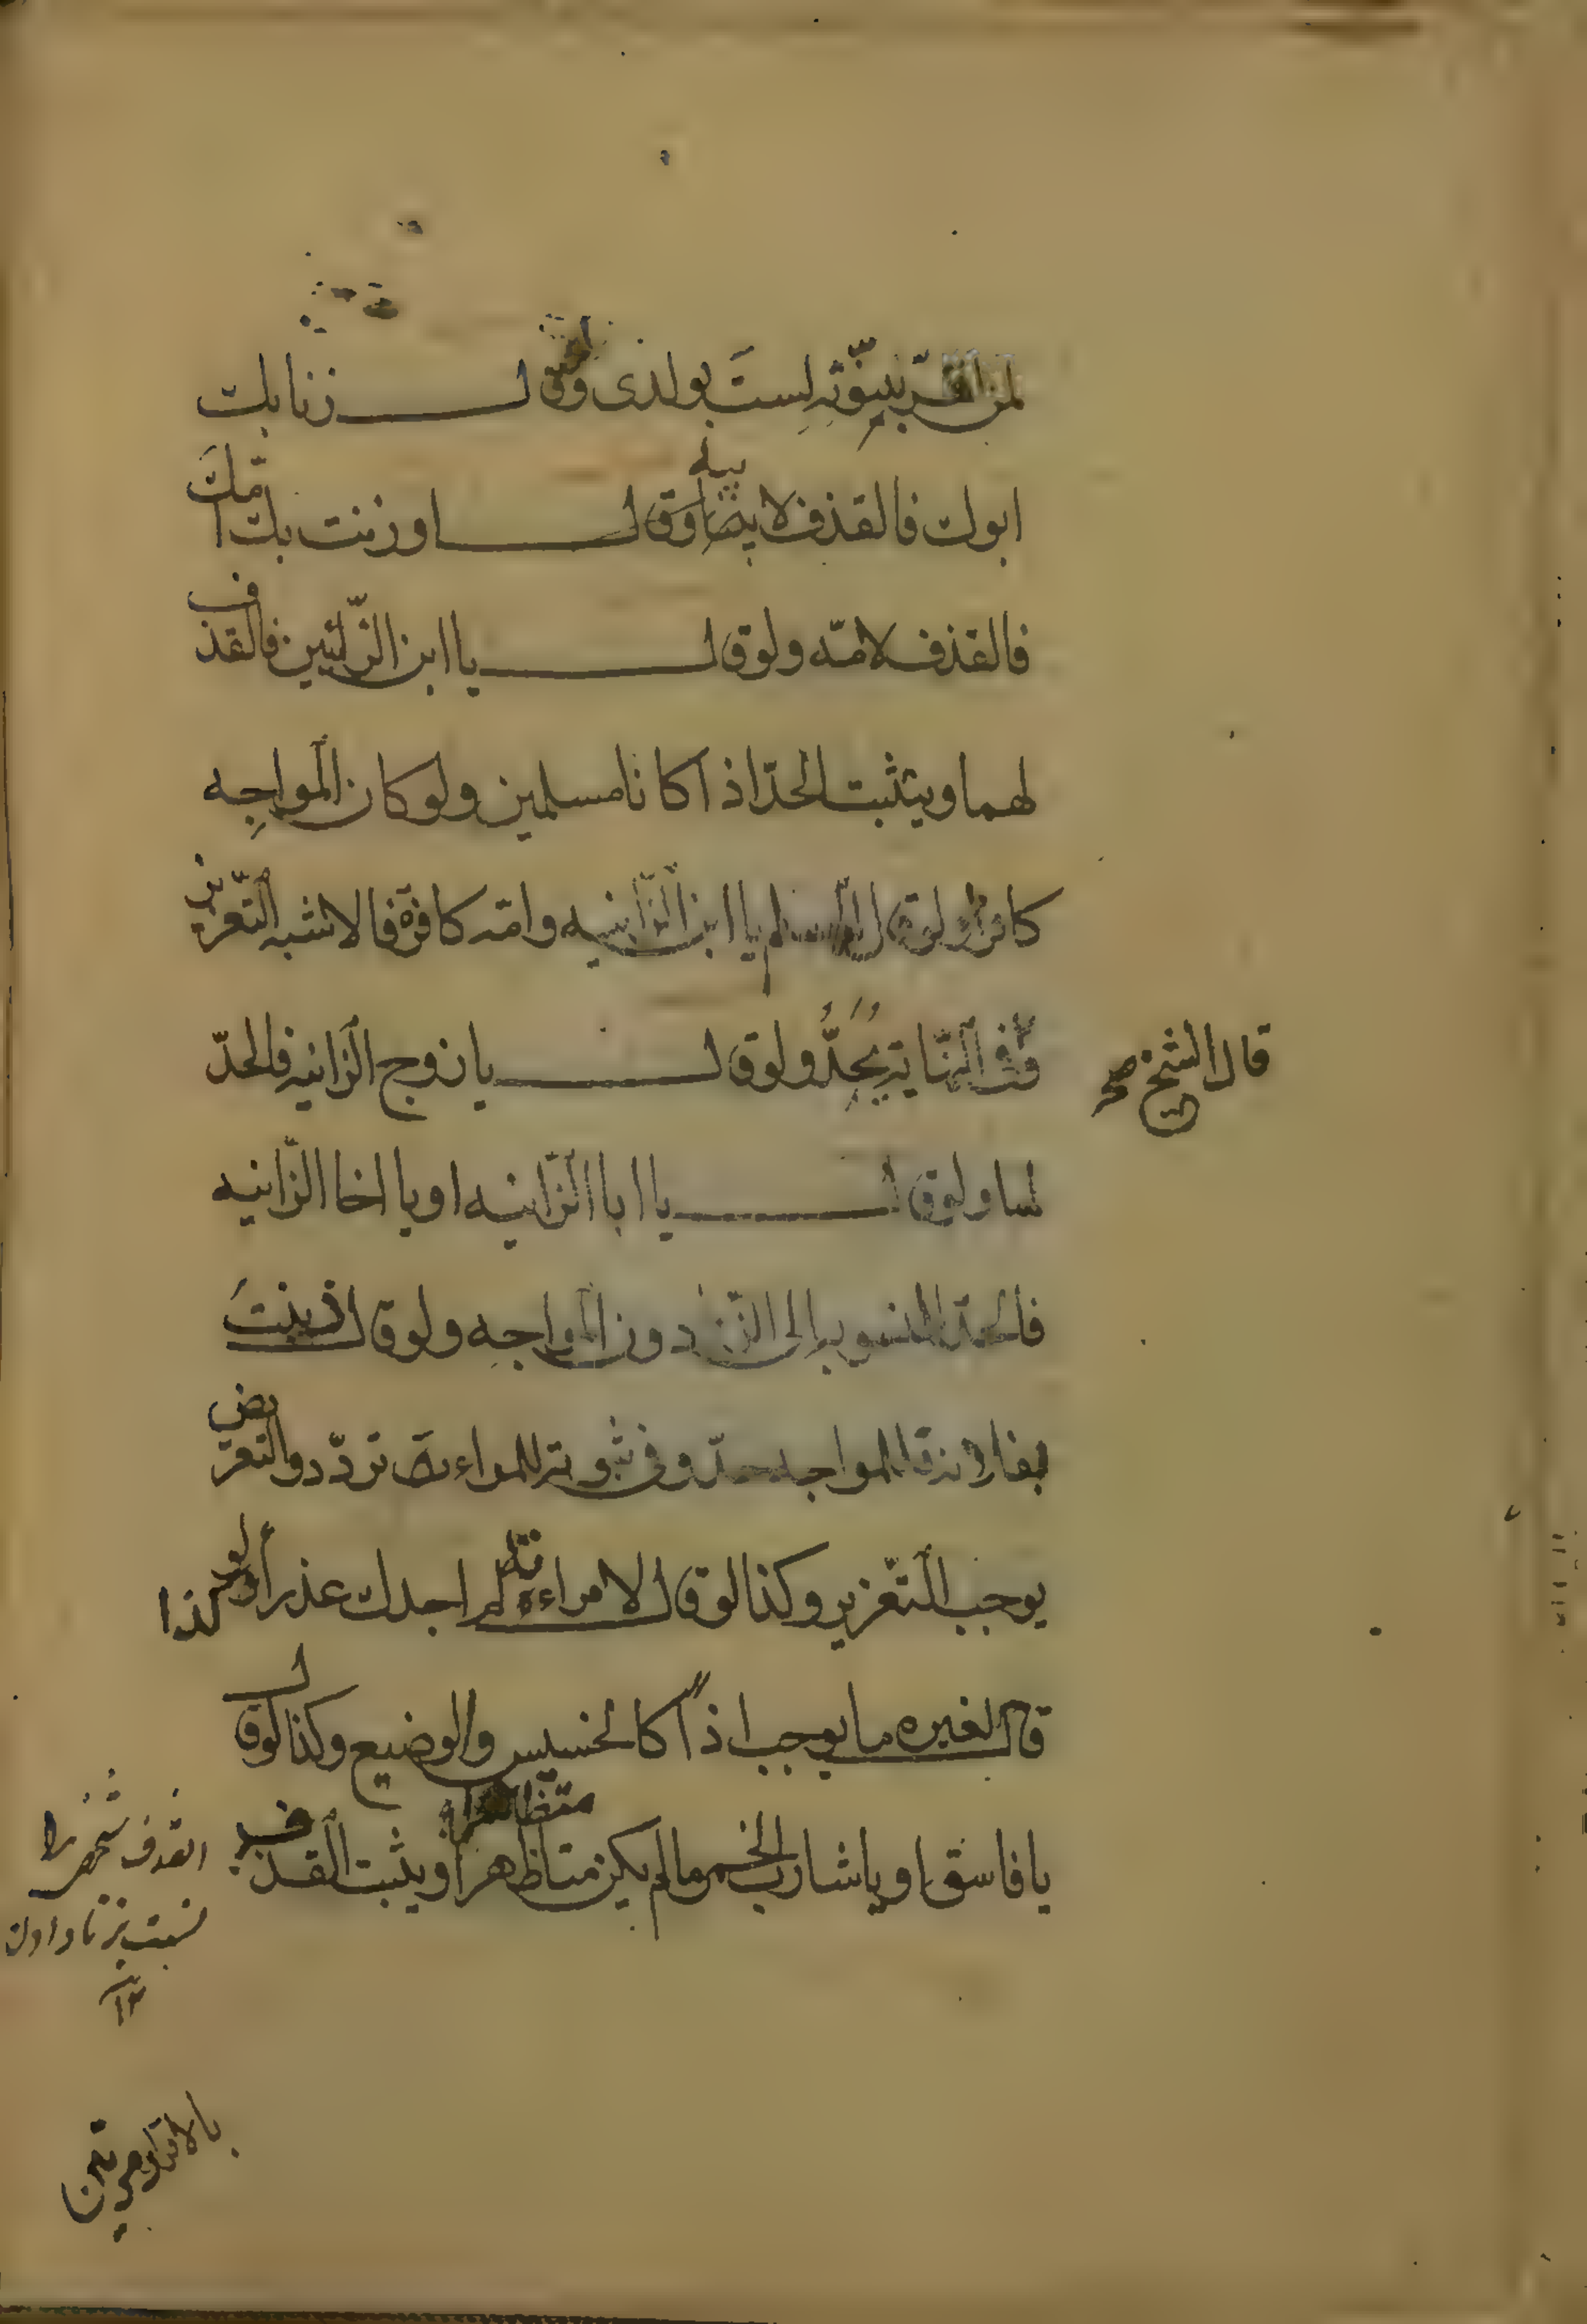 لمن اقرّ ببنوّته لستَ بولدى او قال زنا بك
ابوك فالقذف لابيه او قال او زنت بك امّك
فالقذف لامّه ولو قال يا ابن الزّانيين فالقذف
لهما ويثبت الحدّ اذا كانا مسلمين ولو كان المواجِه
كافراً ولو قال للمسلم يا ابن الزّانيه وامّه كافرة فالاشبه التّعزير
قال الشيخ صح
وفى النّهاية يُحَدُّ ولو قال يا زوج الزانيه فالحدّ
لها ولو قال يا ابا الزّانيه او يا اخا الزّانيه
فالحدّ للمنسوبه الى الزّنا دون المواجه ولو قال زنيتَ
بفلانة فللمواجه حدّ وفى ثبوته للمراءة تردّد والتعريض
يوجب التّعزير وكذا لو قال لامراءته لم اجدك عذراء ولو كذا
قال لغيره ما يوجب اذاً كالخسيس والوضيع وكذا لو قال
يا فاسق او يا شارب الخمر ما لم يكن متظاهرا ويثبت القذف
متظاهرا
القذف شخصى را
نسبت بزنا دادن
بالاقرار مرتين